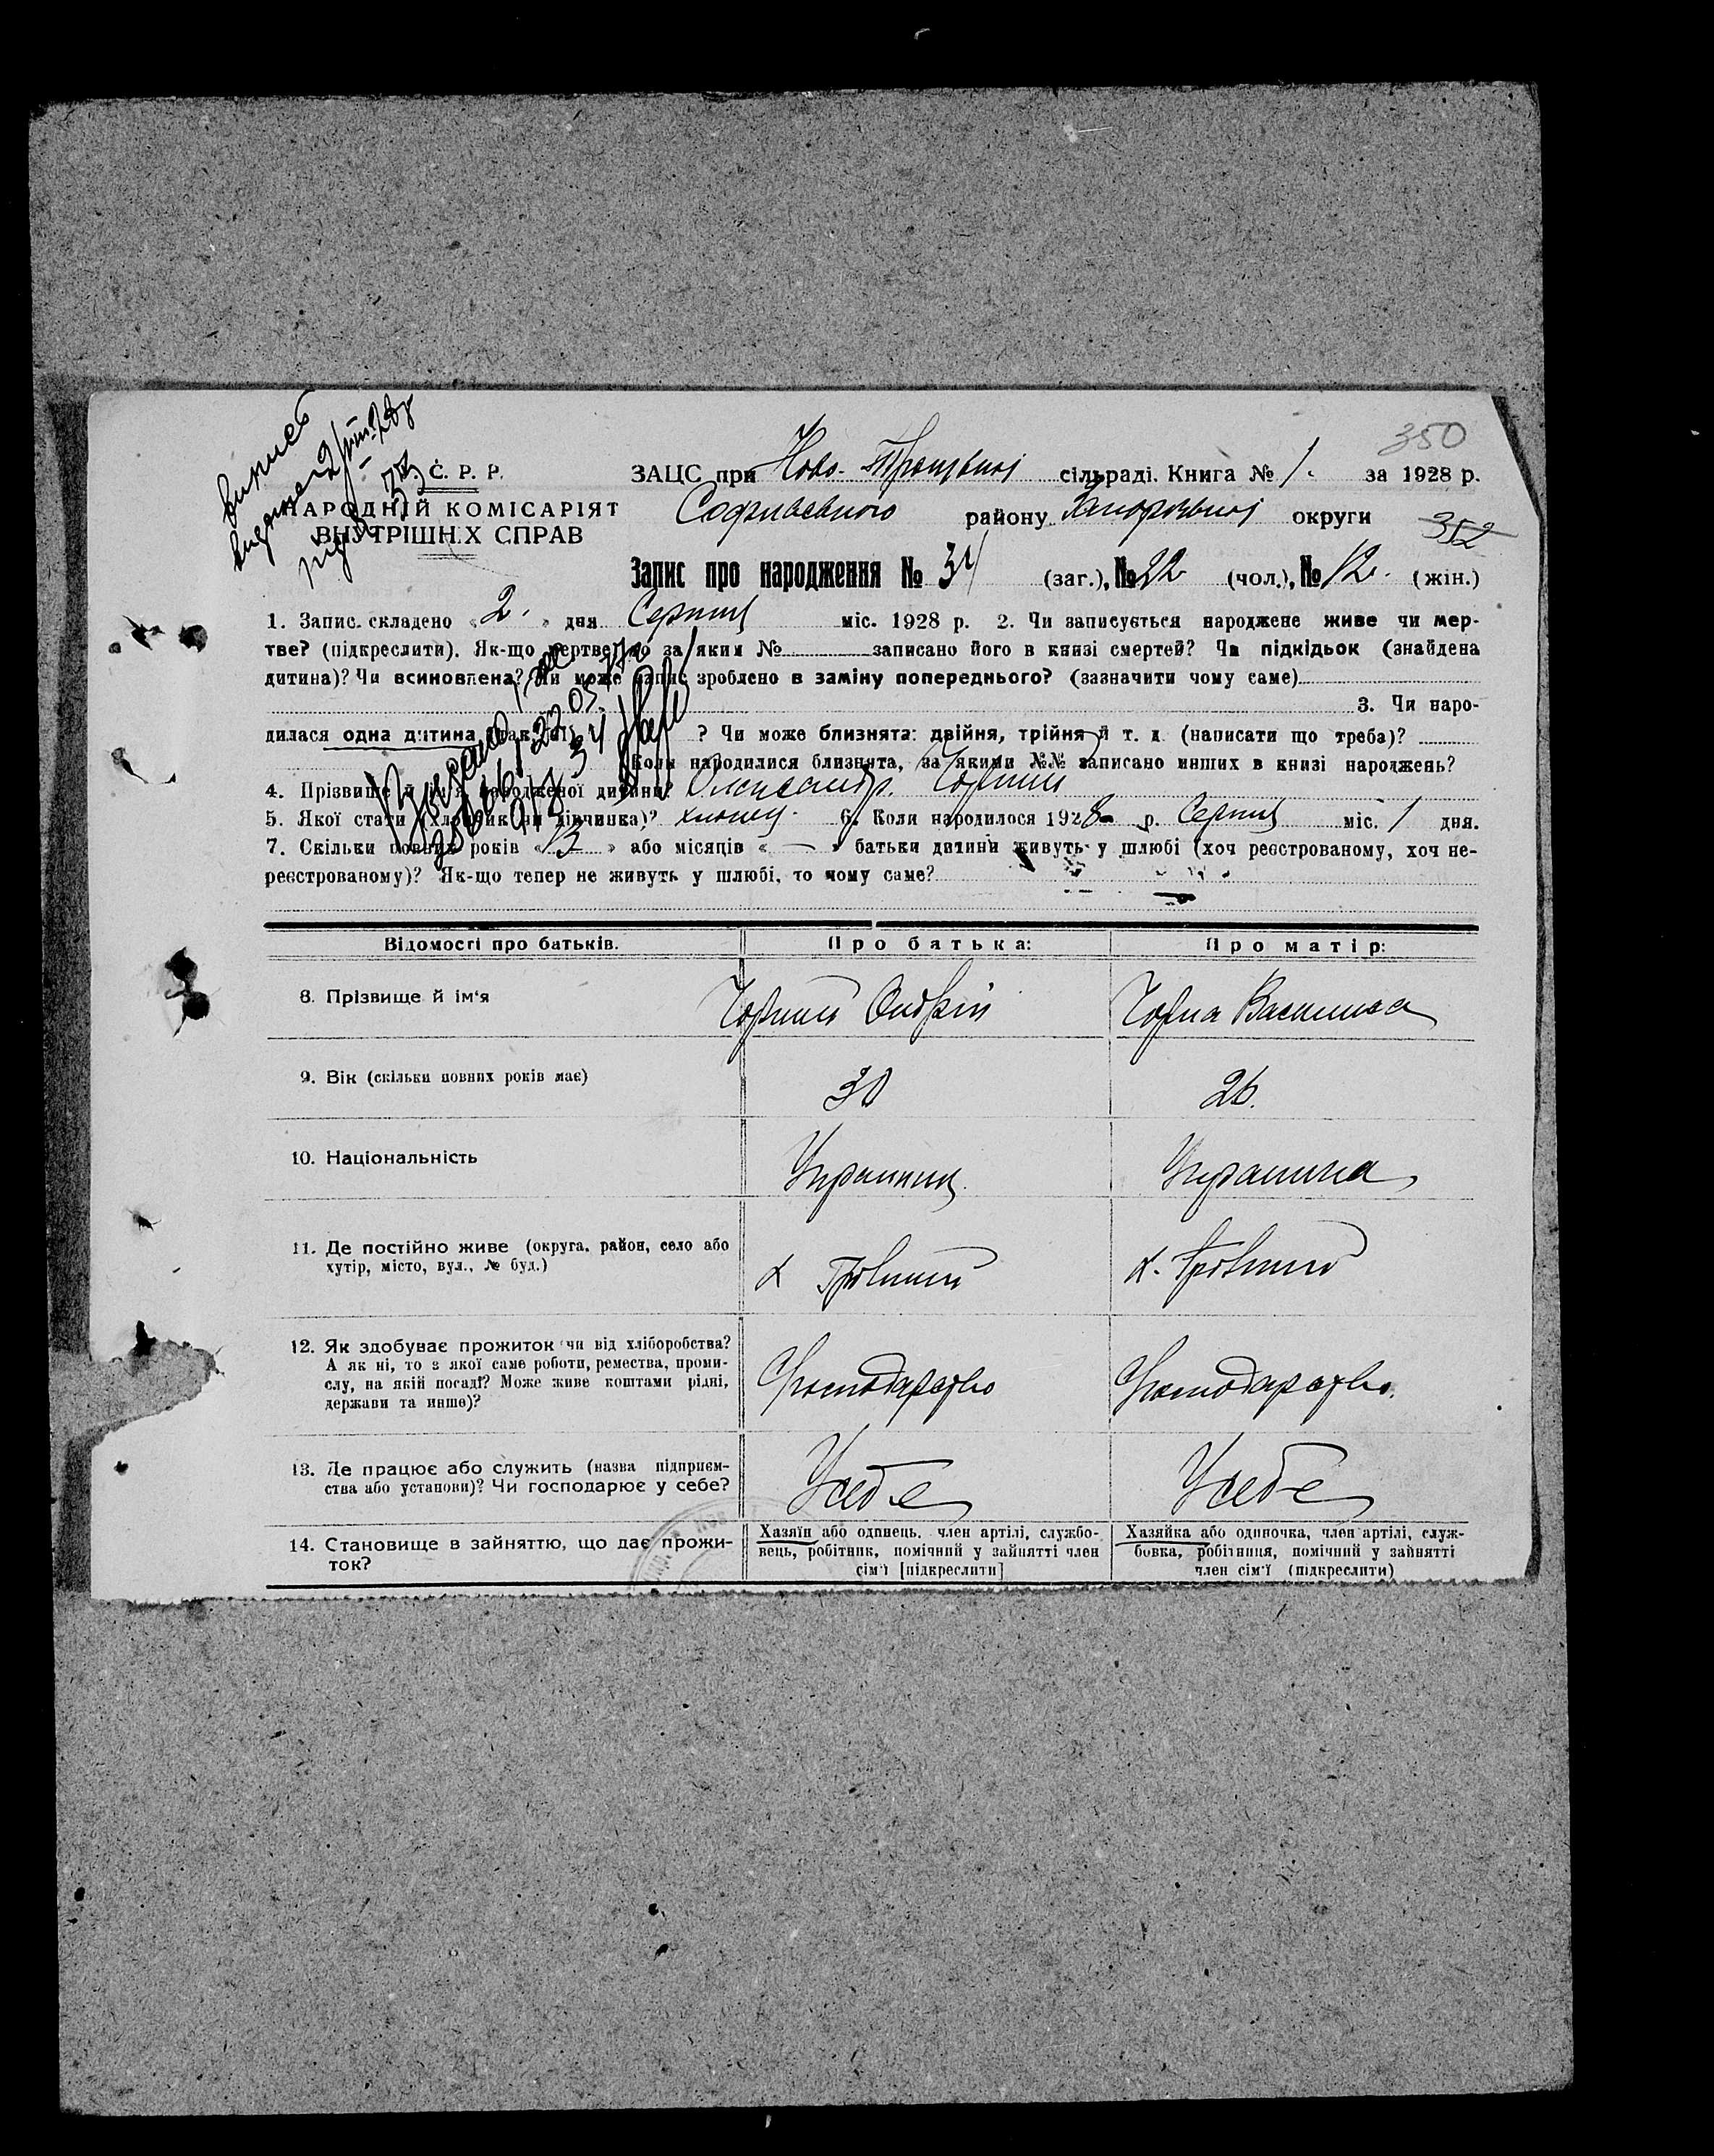 350
У. С. Р. Р.
НАРОДНІЙ КОМІСАРІЯТ
ВНУТРІШНІХ СПРАВ
ЗАЦС при Ново- сільраді. Книга № 1. за 1928 р.
Софиевського району Запорізької округи
352
Запис про народження № 34 (заг.), № 22 (чол.), № 12. (жін.)
1. Запис складено « 2. » дня Серпня міс. 1928 р. 2. Чи записується народжене живе чи мер-
тве? (підкреслити). Як-що мертве, то за яким № записано його в книзі смертей? Чи підкідьок (знайдена
дитина)? Чи всиновлена? Чи може запис зроблено в заміну попереднього? (зазначити чому саме)
3. Чи наро-
дилася одна дитина (так, ні) ? Чи може близнята: двійня, трійня й т. д. (написати що треба)?
Коли народилися близнята, за якими №№ записано инших в книзі народжень?
4. Прізвище й ім'я народженої дитини? Олександр. Чорний
5. Якої стати (хлопчик чи дівчинка)? хлопец. 6. Коли народилося 1928 р. Серпня міс. 1 дня.
7. Скільки повних років « 13 » або місяців « — » батьки дитини живуть у шлюбі (хоч реєстрованому, хоч не-
реєстрованому)? Як-що тепер не живуть у шлюбі, то чому саме?
Відомості про батьків. Про батька: Про матір:
8. Прізвище й ім'я Чорний Андрій Чорна Василиса
9. Вік (скільки повних років має) 30 26.
10. Національність Украинец. Украинка
11. Де постійно живе (округа, район, село або
хутір, місто, вул., № буд.)
х х.
12. Як здобуває прожиток чи від хліборобства?
А як ні, то з якої саме роботи, ремества, проми-
слу, на якій посаді? Може живе коштами рідні,
держави та инше)?
Господарство Господарство.
13. Де працює або служить (назва підприєм-
ства або установи)? Чи господарює у себе?
У себе У себе
14. Становище в зайняттю, що дає прожи-
ток?
Хазяїн або одинець, член артілі, службо-
вець, робітник, помічний у зайнятті член
сім'ї [підкреслити]
Хазяйка або одиночка, член артілі, служ-
бовка, робітниця, помічний у зайнятті
член сім'ї (підкреслити)